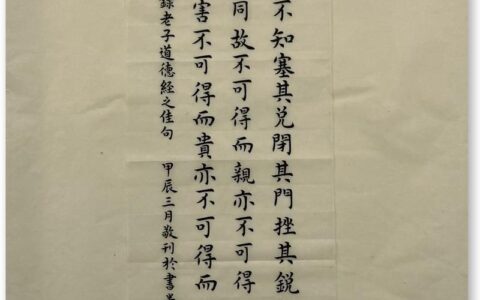 不知塞其兌閉其門挫其銳
同故不可得而親亦不可得
害不可得而貴亦不可得而
錄老子道德經之佳句 甲辰三月敬刊於書